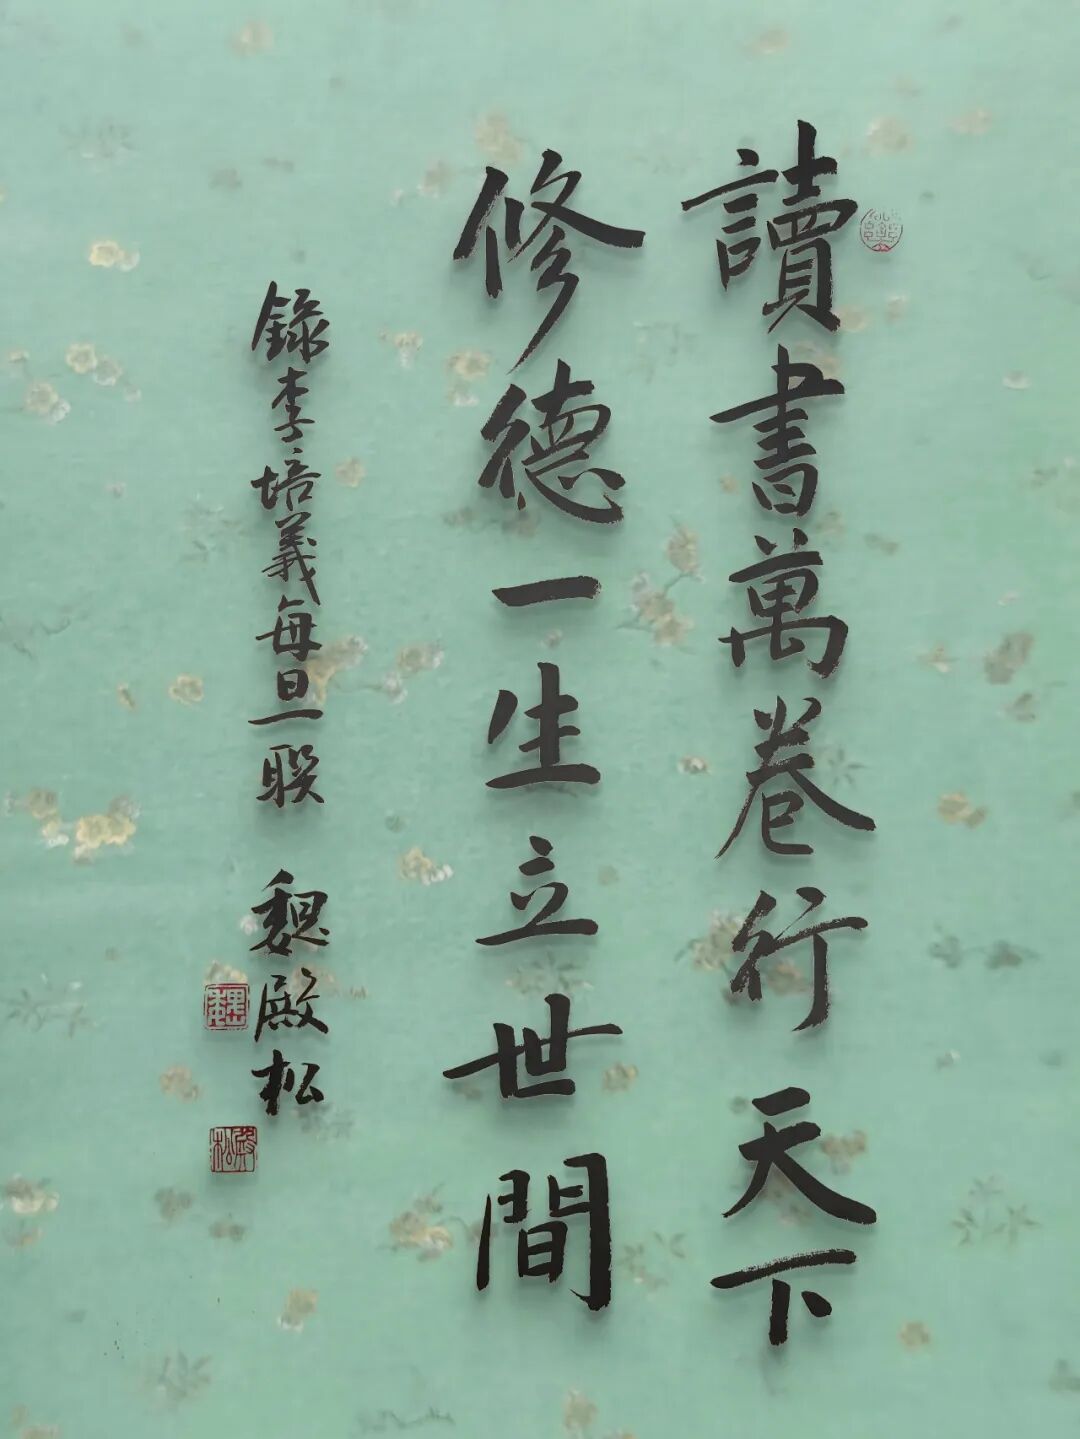 讀書萬卷行天下
修德一生立世間
錄李培義每旦一聯 魏殿松
魏
殿松